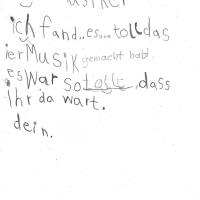 ich fand..es...toll das
ier Musik gemacht habt.
es war so toll, dass
Ihr da wart.
dein.